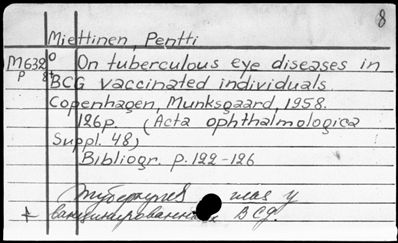 8
Miettinen, Pentti
M632 0 On tuberculous eye diseases in
p 8+ BCG vaccinated individuals
Copenhagen, Munksgaard, 1958.
126p. (Acta ophthalmologica
Suppl. 48)
Bibliogr. p. 122-126
глаз у
+ вакцинированных BCG.